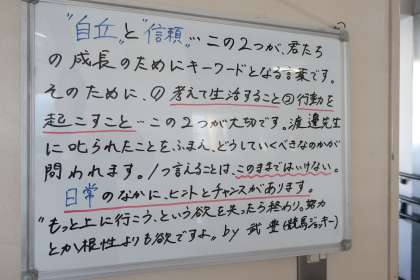 "自立"と"信頼"…この2つが、君たち
の成長のためにキーワードとなる言葉です。
そのために、①考えて生活すること②行動を
起こすこと…この2つが大切です。渡邊先生
に叱られたことをふまえ、どうしていくべきなのかが
問われます。1つ言えることは、このままではいけない。
日常のなかに、ヒントとチャンスがあります。
"もっと上に行こう、という欲を失ったら終わり。努力
とか根性よりも欲ですよ。" by 武 豊(競馬ジョッキー)